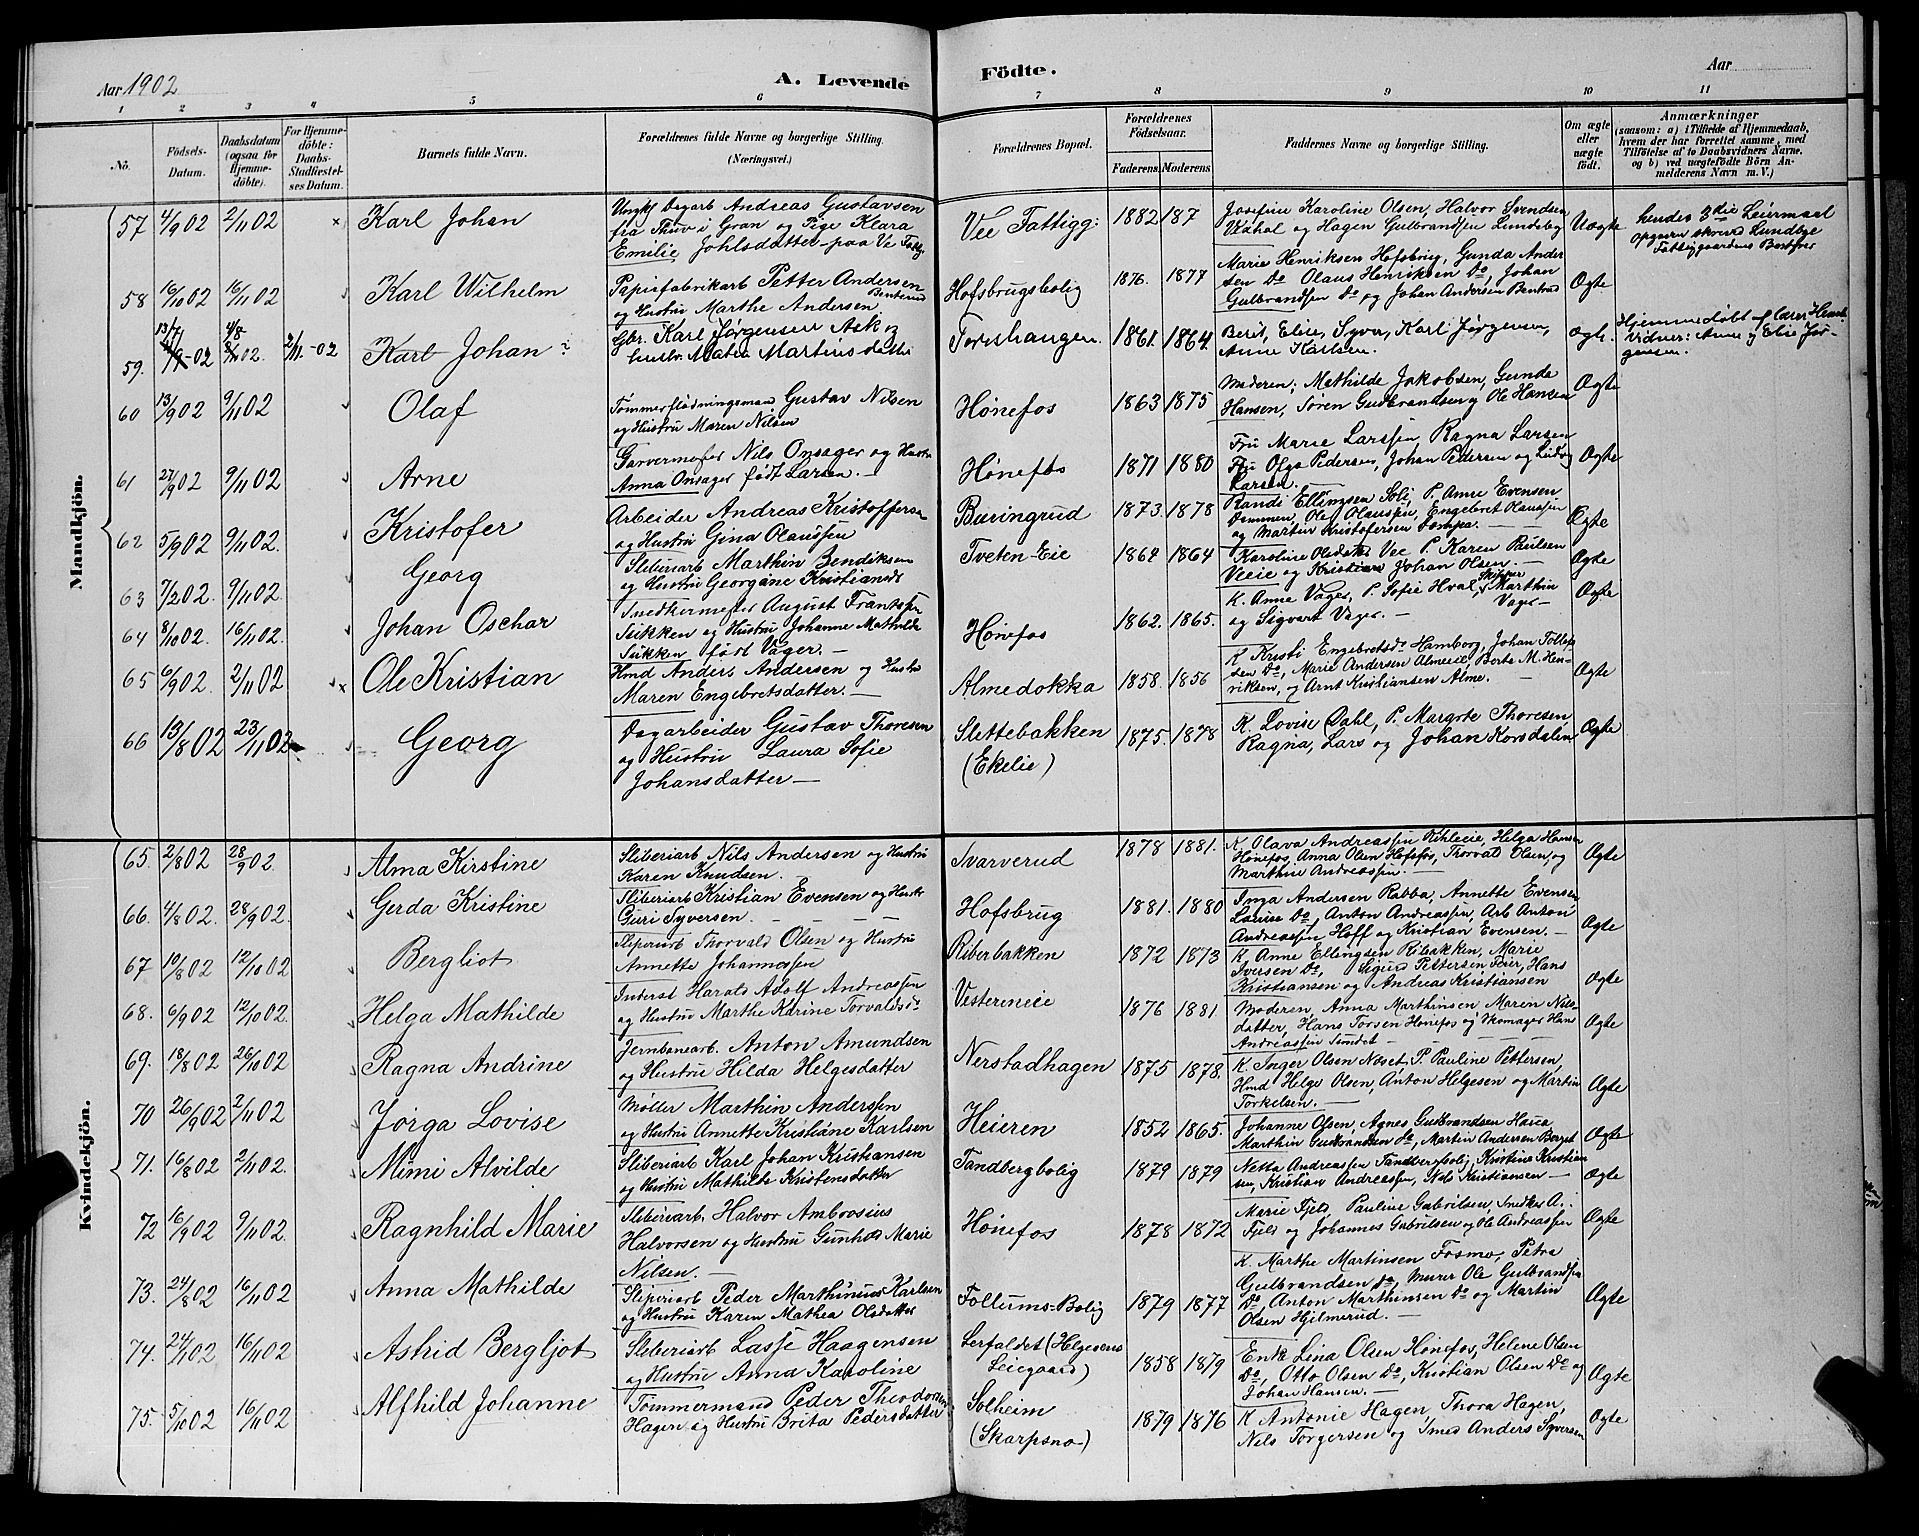 Aar 1902
A. Levende
Födte.
Aar
1 2 3 4 5 6 7 8 9 10 11
No.
Födsels-
Datum.
Daabsdatum
(ogsaa for
Hjemme-
döbte).
For Hjemme-
döbte:
Daabs-
Stadfæstel-
ses Datum.
Barnets fulde Navn.
Forældrenes fulde Navne og borgerlige Stilling.
(Næringsvei.)
Forældrenes Bopæl.
Forældrenes
Födselsaar.
Faderens. Moderens
Faddernes Navne og borgerlige Stilling.
Om ægte
eller
uægte
født.
Anmærkninger
(saasom: a) i Tilfælde af Hjemmedaab,
hvem der har forrettet samme, med
Tilføielse af to Daabsvidners Navne,
og b) ved uægtefödte Börn An-
melderens Navn m. V.)
Mandkjön.
57 4/9 02 2/11 02 Karl Johan
Ungkf Dagarb Andreas Gustavsen
fra Thuv i Gran og Pige Klara
Emilie Johlsdatter paa Ve Fattg.
Vee Fattigg: 1882 187
Josefine Karoline Olsen, Halvor Svendsen
og Hagen Gulbrandsen Lundsbg
Uægte
hendes 3die Leiermaal
Lundbye
Fattiggaardens Bestyrer
58 16/10 02 16/11 02 Karl Wilhelm
Papirfabrikarb Petter Andersen
Benterud
og Hustru Marthe Andersen
Hofsbrugsbolig 1876. 1877
Marie Henriksen Hofsbrug, Gunda Ander
sen Do Olaus Henriksen Do, Johan
Gulbrandsen Do og Johan Andersen Bentrud
Ægte
59. 13/7 -02 4/8 02. 2/11.-02 Karl Johan
Gbr. Karl Jørgensen Ask og
Mathea Martinsdatter
Torishaugen. 1861. 1864.
Berit, Elise, Syver, Karl Jørgensen,
Anne Karlsen.
ægte.
Hjemmedøbt af Lærer
Vidner: Anne og Elise Jør-
gensen.
60 13/9 02 9/11 02 Olaf
Tømmerflødningsmand Gustav Nilsen
og Hustru Maren Nilsen
Hønefos 1863 1875
Moderen; Mathilde Jakobsen, Gunda
Hansen, Søren Gudbrandsen og Ole Hansen
Ægte
61 27/9 02 9/11 02 Arne
Garvermester Nils Onsager og Hustru
Anna Onsager født Larsen. —
Hønefos 1871 1880
Fru Marie Larssen, Ragna Larsen
Fru Olga Pedersen, Johan Pedersen og Ludvig
Larsen. —
Ægte
62 5/9 02 9/11 02. Kristofer
Arbeider Andreas Kristoffersen
og Hustru Gina Olaussen
Buringrud 1873. 1878
Randi Ellingsen Soli, P. Anne Evensen
Dammen, Ole Olaussen, Engebret Olaussen
og Martin Kristofersen Sompa. —
Ægte
63 7/2 02. 9/11 02. Georg
Sliberiarb Marthin Bendiksen
og Hustru Georgine Kristiansdt
Tveten Eie 1864 1864
Karoline Olsdatter Vee P. Karen Paulsen
Veeie og Kristian Johan Olsen. —
Ægte
64 8/10 02. 16/11 02. Johan Oschar
Snedkermester August Frantssen
Sukken og Hustru Johanne Mathilde
Sukken født Vager. —
Hønefos 1862. 1865.
K. Anne Vager, P. Sofie Hval, Marthin
Vager —
og Sigvart Vager. —
Ægte
65 6/9 02. 2/11 02 Ole Kristian
Hmd Anders Andersen og Hustru
Maren Engebretsdatter. —
Almedokka 1858. 1856
K Kristi Engebretsdr Hamborg, Johan Tollef
sen Do, Marie Andersen Almeeie, Berte M. Hen-
riksen, og Arnt Kristiansen Alme. —
Ægte
66 13/8 02 23/11 02 Georg
Dagarbeider Gustav Thoresen
og Hustru Laura Sofie
Johansdatter —
Slettebakken
(Ekelie)
1875. 1878
K Lovise Dahl, P. Margrte Thoresen
Ragna, Lars og Johan Korsdalen.
Ægte
Kvindekjön.
65. 2/8 02 28/9 02 Alma Kirstine
Sliberiarb Nils Andersen og Hustru
Karen Knudsen.
Svarverud 1878 1881.
K Olava Andreassen, Helga Hansen
Hønefos, Anna Olsen Hofsfos, Thorvald Olsen, og
Marthin Andreassen. —
Ægte
66. 4/8 02. 28/9 02. Gerda Kristine
Sliberiarb Kristian Evensen og Hustr
Guri Syversen. —
Hofsbrug 1881. 1880
Inga Andersen Rabba, Annette Evensen
Laurine Do, Anton Andreassen, Arb Anton
Andreassen Hoff og Kristian Evensen. —
Ægte
67 10/8 02 12/10 02 Bergliot
Sliperiarb Thorvald Olsen og Hustru
Annette Johannessen
Riberbakken 1872 1873
K. Anne Ellingsen Ribakken, Marie
Iversen Do, Sigurd Pettersen Feier, Hans
Kristiansen og Andreas Kristiansen
Ægte
68. 6/9 02 12/10 02. Helga Mathilde
Inderst Harald Adolf Andreassen
og Hustru Marthe Karine Torvaldsdr
Vestereneie 1876 1881
Moderen, Anna Marthinsen, Maren Nils-
datter, Hans Torsen Hønefos og Skomager Hans
Andreassen Sundet —
Ægte
69. 18/8 02 26/10 02 Ragna Andrine
Jernbanearb. Anton Amundsen
og Hustru Hilda Helgesdatter
Nerstadhagen 1875 1878.
K. Inger Olsen Næset, P. Pauline Pettersen,
Hmd Helge Olsen, Anton Helgesen og Martin
Torkelsen. —
Ægte
70 26/9 02 2/11 02 Jørga Lovise
Møller Marthin Anderssen
og Hustru Annette Kristiane Karlsen
Heieren 1852 1865.
Johanne Olsen, Agnes Gudbrandsen
Marthin Gudbrandsen Do, Martin Andersen Berget
Ægte
71. 16/8 02 2/11 02. Mimi Alvilde
Sliberiarb Karl Johan Kristiansen
og Hustru Mathilde Kristensdatter
Tandbergbolig 1879 1879
Netta Andreassen Tandbergbolig, Kristine Kristian
sen, Kristian Andreassen, Nils Kristiansen —
Ægte
72 16/9 02 9/11 02. Ragnhild Marie
Sliberiarb. Halvor Ambrosius
Halvorsen og Hustru Gunhild Marie
Nilsen. —
Hønefos 1878 1872
Marie Fjeld, Pauline Gabrilsen, Snedker A.
Fjeld og Johannes Gabrilsen og Ole Andreassen
Ægte
73. 24/8 02 16/11 02 Anna Mathilde
Sliperiarb Peder Marthinius Karlsen
og Hustru Karen Mathea Olsdatter
Follums-Bolig 1879 1877
K. Marthe Martinsen Fosmo, Petra
Gulbrandsen Do, Murer Ole Gulbrandsen
Do, Anton Marthinsen Do og Martin
Olsen Hjelmerud. —
Ægte
74. 24/9 02 16/11 02 Astrid Bergljot
Sliberiarb Lasse Haagensen
og Hustru Anna Karoline
Serfaldet (Helgesens
Leiegaard)
1858 1879
Enke Lina Olsen Hønefos, Helene Olsen
Do, Otto Olsen Do, Kristian Olsen Do og
Johan Hansen. —
Ægte
75. 5/10 02 16/11 02 Alfhild Johanne
Tømmermand Peder Theodorsen
Hagen og Hustru Brita Pedersdatter
Solheim
(Skarpsno)
1879 1876
K Antonie Hagen, Thora Hagen,
Nils Torgersen og Smed Anders Syversen
Ægte